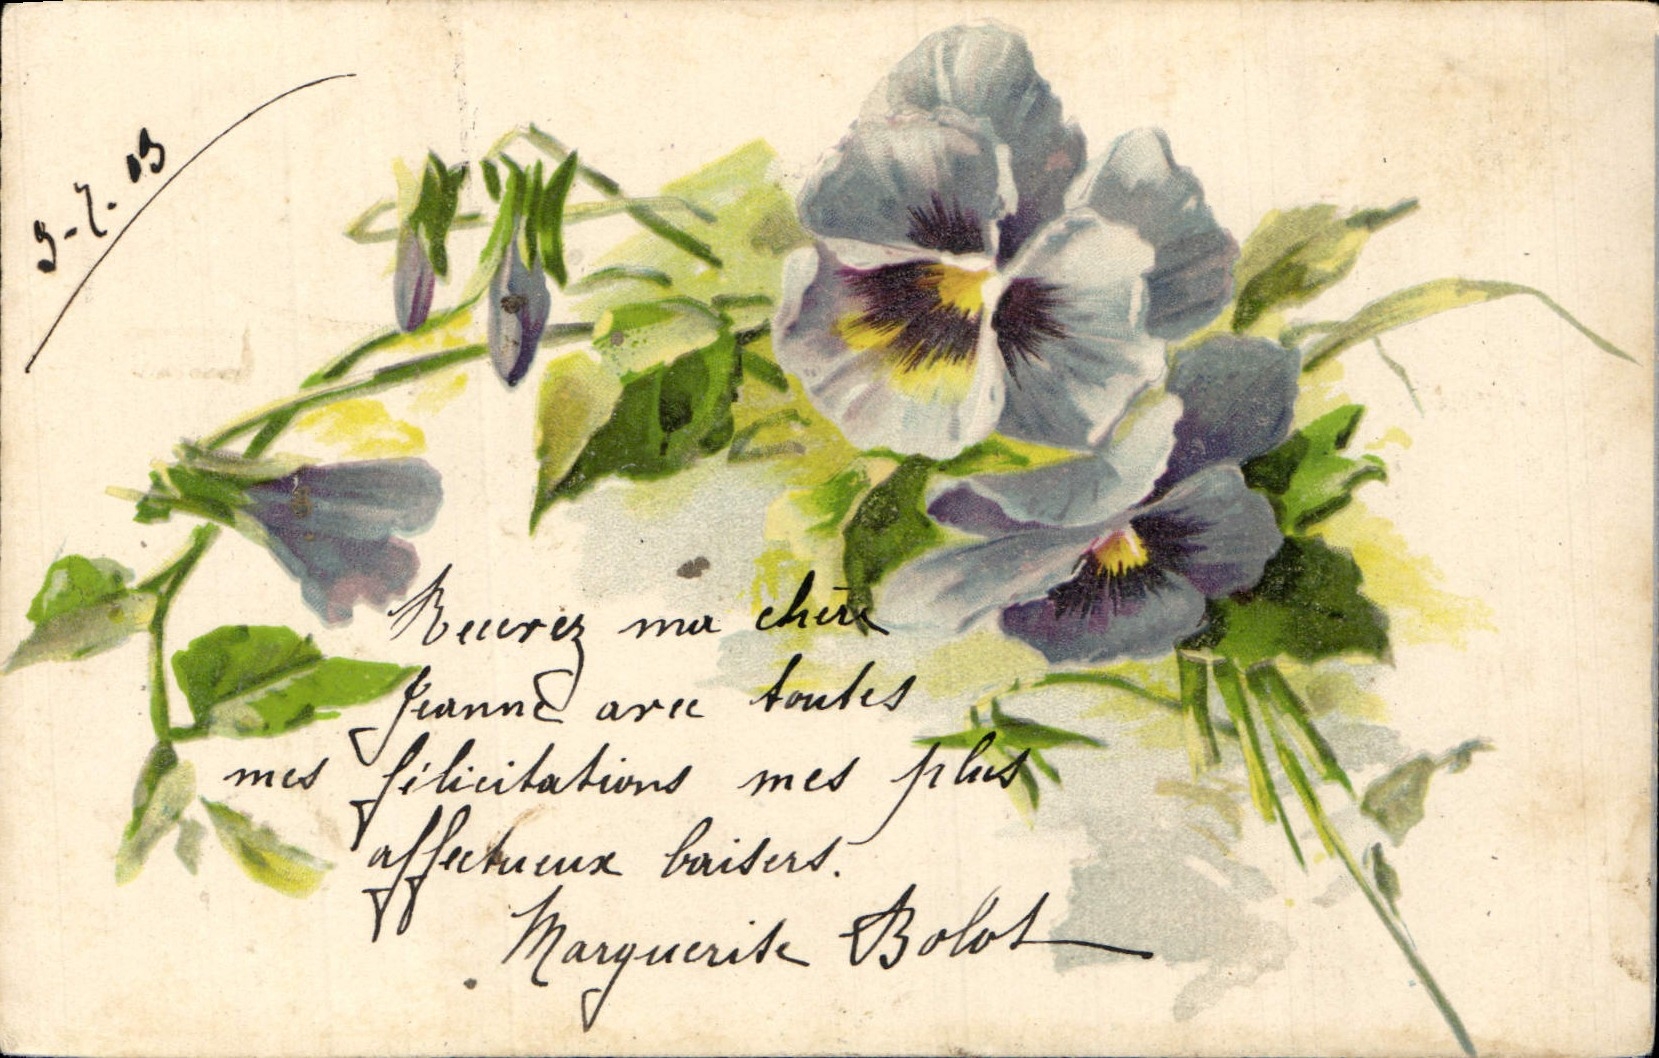 9-7.03
Recevez ma chère
Jeanne avec toutes
mes félicitations mes plus
affectueux baisers.
Marguerite Bolot